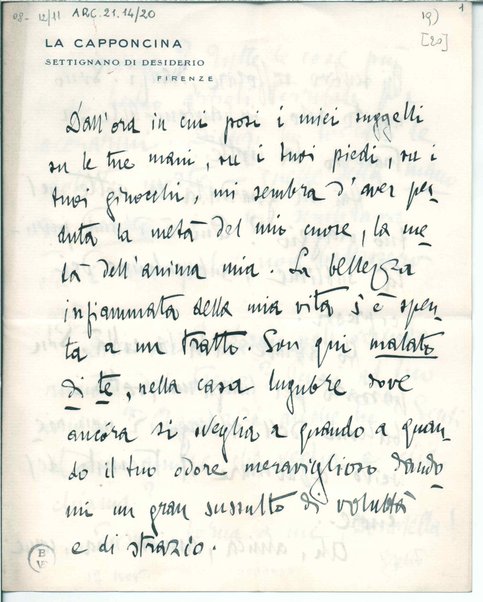 08- 12/11 ARC.21.14/20
1
19)
[20]
LA CAPPONCINA
SETTIGNANO DI DESIDERIO
FIRENZE
Dall'ora in cui posi i miei suggelli
su le tue mani, su i tuoi piedi, su i
tuoi ginocchi, mi sembra d'aver per-
duta la metà del mio cuore, la me-
tà dell'anima mia. La bellezza
infiammata della mia vita s'è spen-
ta a un tratto. Son qui malato
di te, nella casa lugubre dove
ancora si sveglia a quando a quan-
do il tuo odore meraviglioso dando-
mi un gran sussulto di voluttà
e di strazio.
B
V